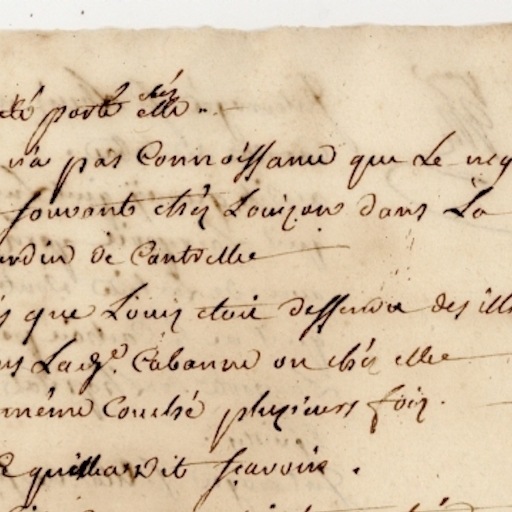 été porté chés elle ..
n'a pas Connoissance que Le neg
souvant chés Louizon dans La
ardin de Cantrelle
s que Louis etoit deffendu des ill
ns Lad.e Cabanne ou chés elle
même Couché plusieurs fois.
quilla dit sçavoir .